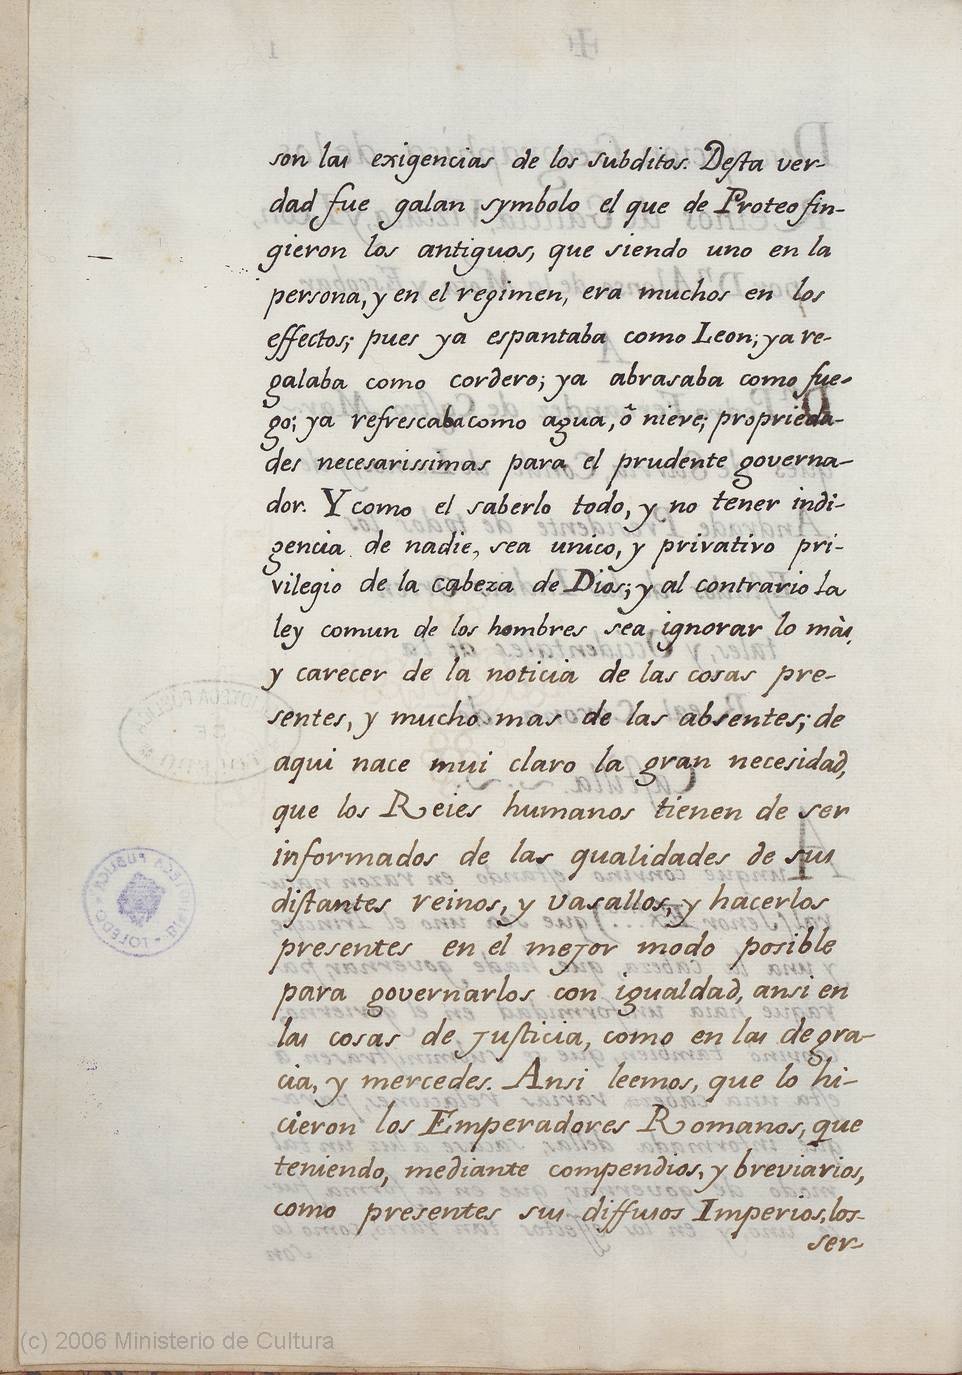 son las exigencias de los subditos. Desta ver-
dad fue galan symbolo el que de Proteo fin-
gieron los antiguos, que siendo uno en la
persona, y en el regimen, era muchos en los
effectos; pues ya espantaba como Leon; ya re-
galaba como cordero; ya abrasaba como fue-
go; ya refrescaba como agua, ô nieve; proprieda-
des necesarissimas para el prudente governa-
dor. Y como el saberlo todo, y no tener indi-
gencia de nadie, sea unico, y privativo pri-
vilegio de la cabeza de Dios; y al contrario la
ley comun de los hombres sea ignorar lo màs,
y carecer de la noticia de las cosas pre-
sentes, y mucho mas de las absentes; de
aqui nace mui claro la gran necesidad,
que los Reies humanos tienen de ser
informados de las qualidades de sus
distantes reinos, y vasallos, y hacerlos
presentes en el mejor modo posible
para governarlos con igualdad, ansi en
las cosas de justicia, como en las de gra-
cia, y mercedes. Ansi leemos, que lo hi-
cieron los Emperadores Romanos, que
teniendo, mediante compendios, y breviarios,
como presentes sus diffusos Imperios, los
ser-
(c) 2006 Ministerio de Cultura